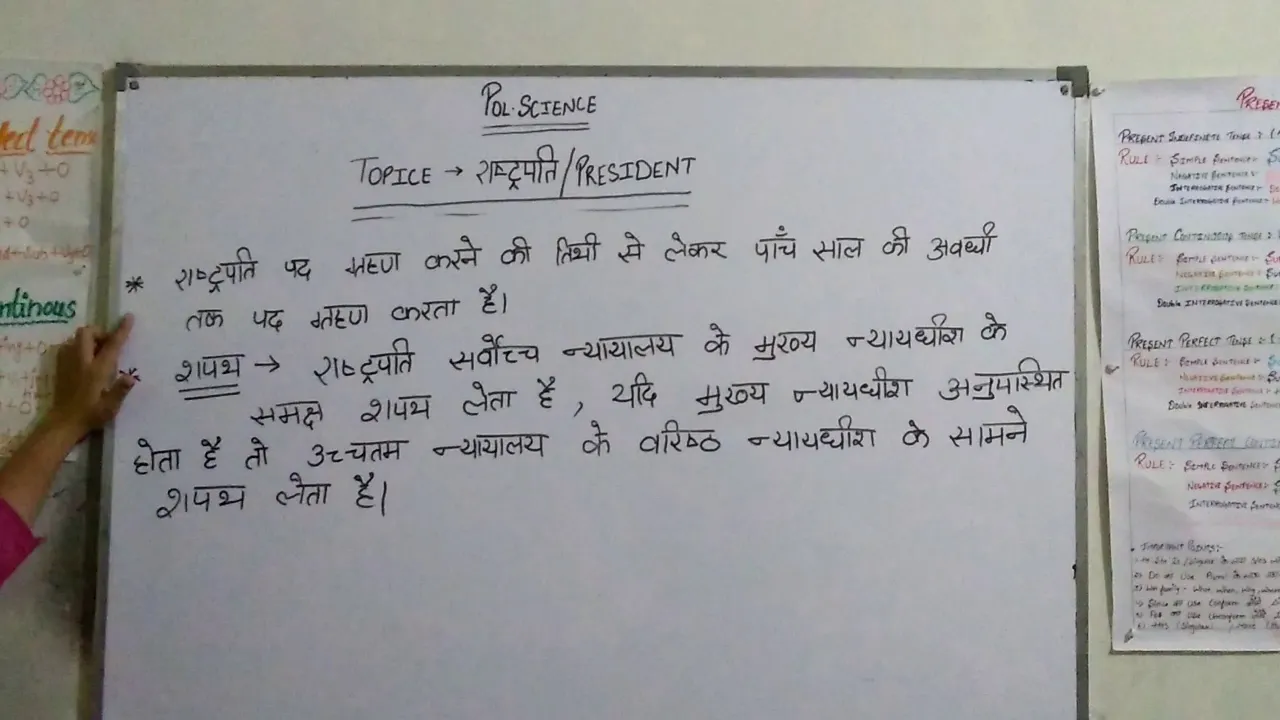 POL. SCIENCE
TOPICE → राष्ट्रपति/PRESIDENT
* राष्ट्रपति पद ग्रहण करने की तिथी से लेकर पाँच साल की अवधी
तक पद ग्रहण करता है।
* शपथ → राष्ट्रपति सर्वोच्च न्यायालय के मुख्य न्यायधीश के
समक्ष शपथ लेता है, यदि मुख्य न्यायधीश अनुपस्थित
होता है तो उच्चतम न्यायालय के वरिष्ठ न्यायधीश के सामने
शपथ लेता है।
tens
+ V3 + O
+ V3 + O
+ O
ntinous
PRESENT INDEFINITE TENSE :
RULE :- SIMPLE SENTENCE :-
NEGATIVE SENTENCE :-
INTERROGATIVE SENTENCE :-
DOUBLE INTERROGATIVE SENTENCE :-
PRESENT CONTINUOUS TENSE :
RULE :- SIMPLE SENTENCE :-
NEGATIVE SENTENCE :-
INTERROGATIVE SENTENCE :-
DOUBLE INTERROGATIVE SENTENCE
PRESENT PERFECT TENSE :
RULE :- SIMPLE SENTENCE :-
NEGATIVE SENTENCE :-
INTERROGATIVE SENTENCE :-
DOUBLE INTERROGATIVE SENTENCE
PRESENT PERFECT
RULE :- SIMPLE SENTENCE :-
NEGATIVE SENTENCE :-
INTERROGATIVE SENTENCE
IMPORTANT POINTS :-